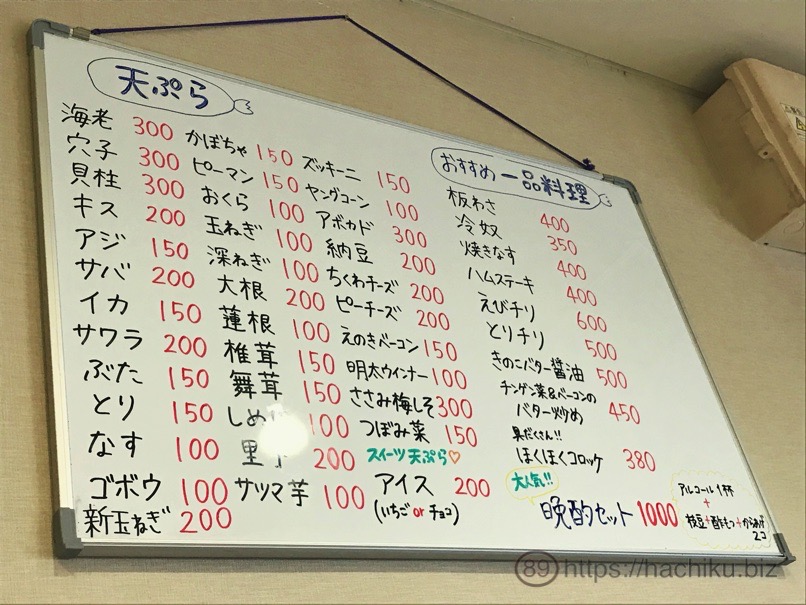 天ぷら
海老 300
穴子 300
貝柱 300
キス 200
アジ 150
サバ 200
イカ 150
サワラ 200
ぶた 150
とり 150
なす 100
ゴボウ 100
新玉ねぎ 200
かぼちゃ 150
ピーマン 150
おくら 100
玉ねぎ 100
深ねぎ 100
大根 200
蓮根 100
椎茸 150
舞茸 150
しめじ 100
200
サツマ芋 100
ズッキーニ 150
ヤングコーン 100
アボカド 300
納豆 200
ちくわチーズ 200
ピーチーズ 200
えのきベーコン 150
明太ウインナー 100
ささみ梅しそ 300
つぼみ菜 150
スイーツ天ぷら♡
アイス 200
(いちご or チョコ)
おすすめ一品料理
板わさ 400
冷奴 350
焼きなす 400
ハムステーキ 400
えびチリ 600
とりチリ 500
きのこバター醤油 500
チンゲン菜&ベーコンの
バター炒め 450
具だくさん!!
ほくほくコロッケ 380
大人気!!
晩酌セット 1000
アルコール1杯
+
枝豆+酢もつ+からあげ
2コ
89 https://hachiku.biz